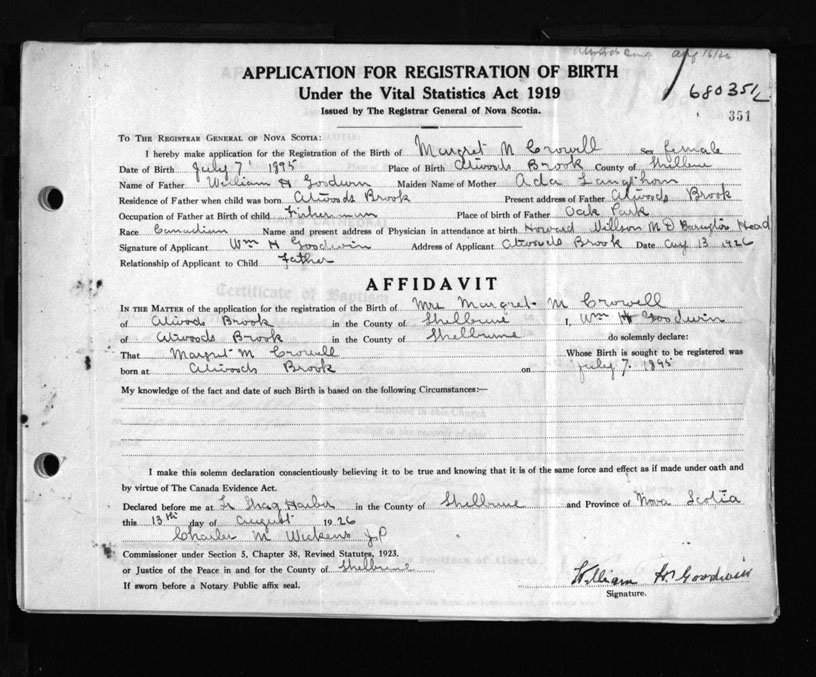 aug 16/26
APPLICATION FOR REGISTRATION OF BIRTH
Under the Vital Statistics Act 1919
680351
Issued by The Registrar General of Nova Scotia.
351
TO THE REGISTRAR GENERAL OF NOVA SCOTIA:
I hereby make application for the Registration of the Birth of Margret M Crowell Sex female
Date of Birth July 7 1895 Place of Birth Atwoods Brook County of Shelburne
Name of Father William H Goodwin Maiden Name of Mother Ada Langthorn
Residence of Father when child was born Atwoods Brook Present address of Father Atwoods Brook
Occupation of Father at Birth of child Fisherman Place of birth of Father Oak Park
Race Canadian Name and present address of Physician in attendance at birth Howard Willson M D Head
Signature of Applicant Wm H Goodwin Address of Applicant Atwoods Brook Date Aug 13 1926
Relationship of Applicant to Child Father
AFFIDAVIT
IN THE MATTER of the application for the registration of the Birth of Mrs Margret M Crowell
of Atwoods Brook in the County of Shelburne I, Wm H Goodwin
of Atwoods Brook in the County of Shelburne do solemnly declare:
That Margret M Crowell Whose Birth is sought to be registered was
born at Atwoods Brook on July 7. 1895
My knowledge of the fact and date of such Birth is based on the following Circumstances:—
I make this solemn declaration conscientiously believing it to be true and knowing that it is of the same force and effect as if made under oath and
by virtue of The Canada Evidence Act.
Declared before me at Shag Harbor in the County of Shelburne and Province of Nova Scotia
this 13th day of August 1926
Charles M Wickens J P
Commissioner under Section 5, Chapter 38, Revised Statutes, 1923.
or Justice of the Peace in and for the County of Shelburne
William H Goodwin
If sworn before a Notary Public affix seal.
Signature.